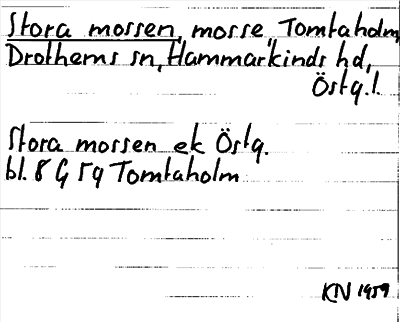 Stora mossen, mosse, Tomtaholm,
Drothems sn, Hammarkinds hd,
Östg.l.
Stora mossen ek Östg.
bl. 8 G 5g Tomtaholm
KN 1959